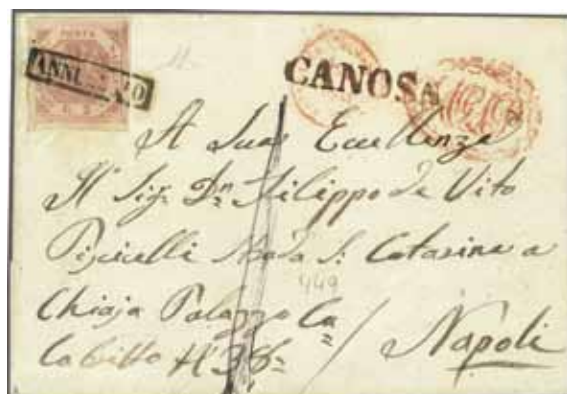 POSTA
ANNULLATO
CANOSA
A Sua Eccellenza
Il Sigr Dn Filippo de Vito
Piscicelli Strada S: Catarina a
Chiaja Palazzo
449
N 38
Napoli